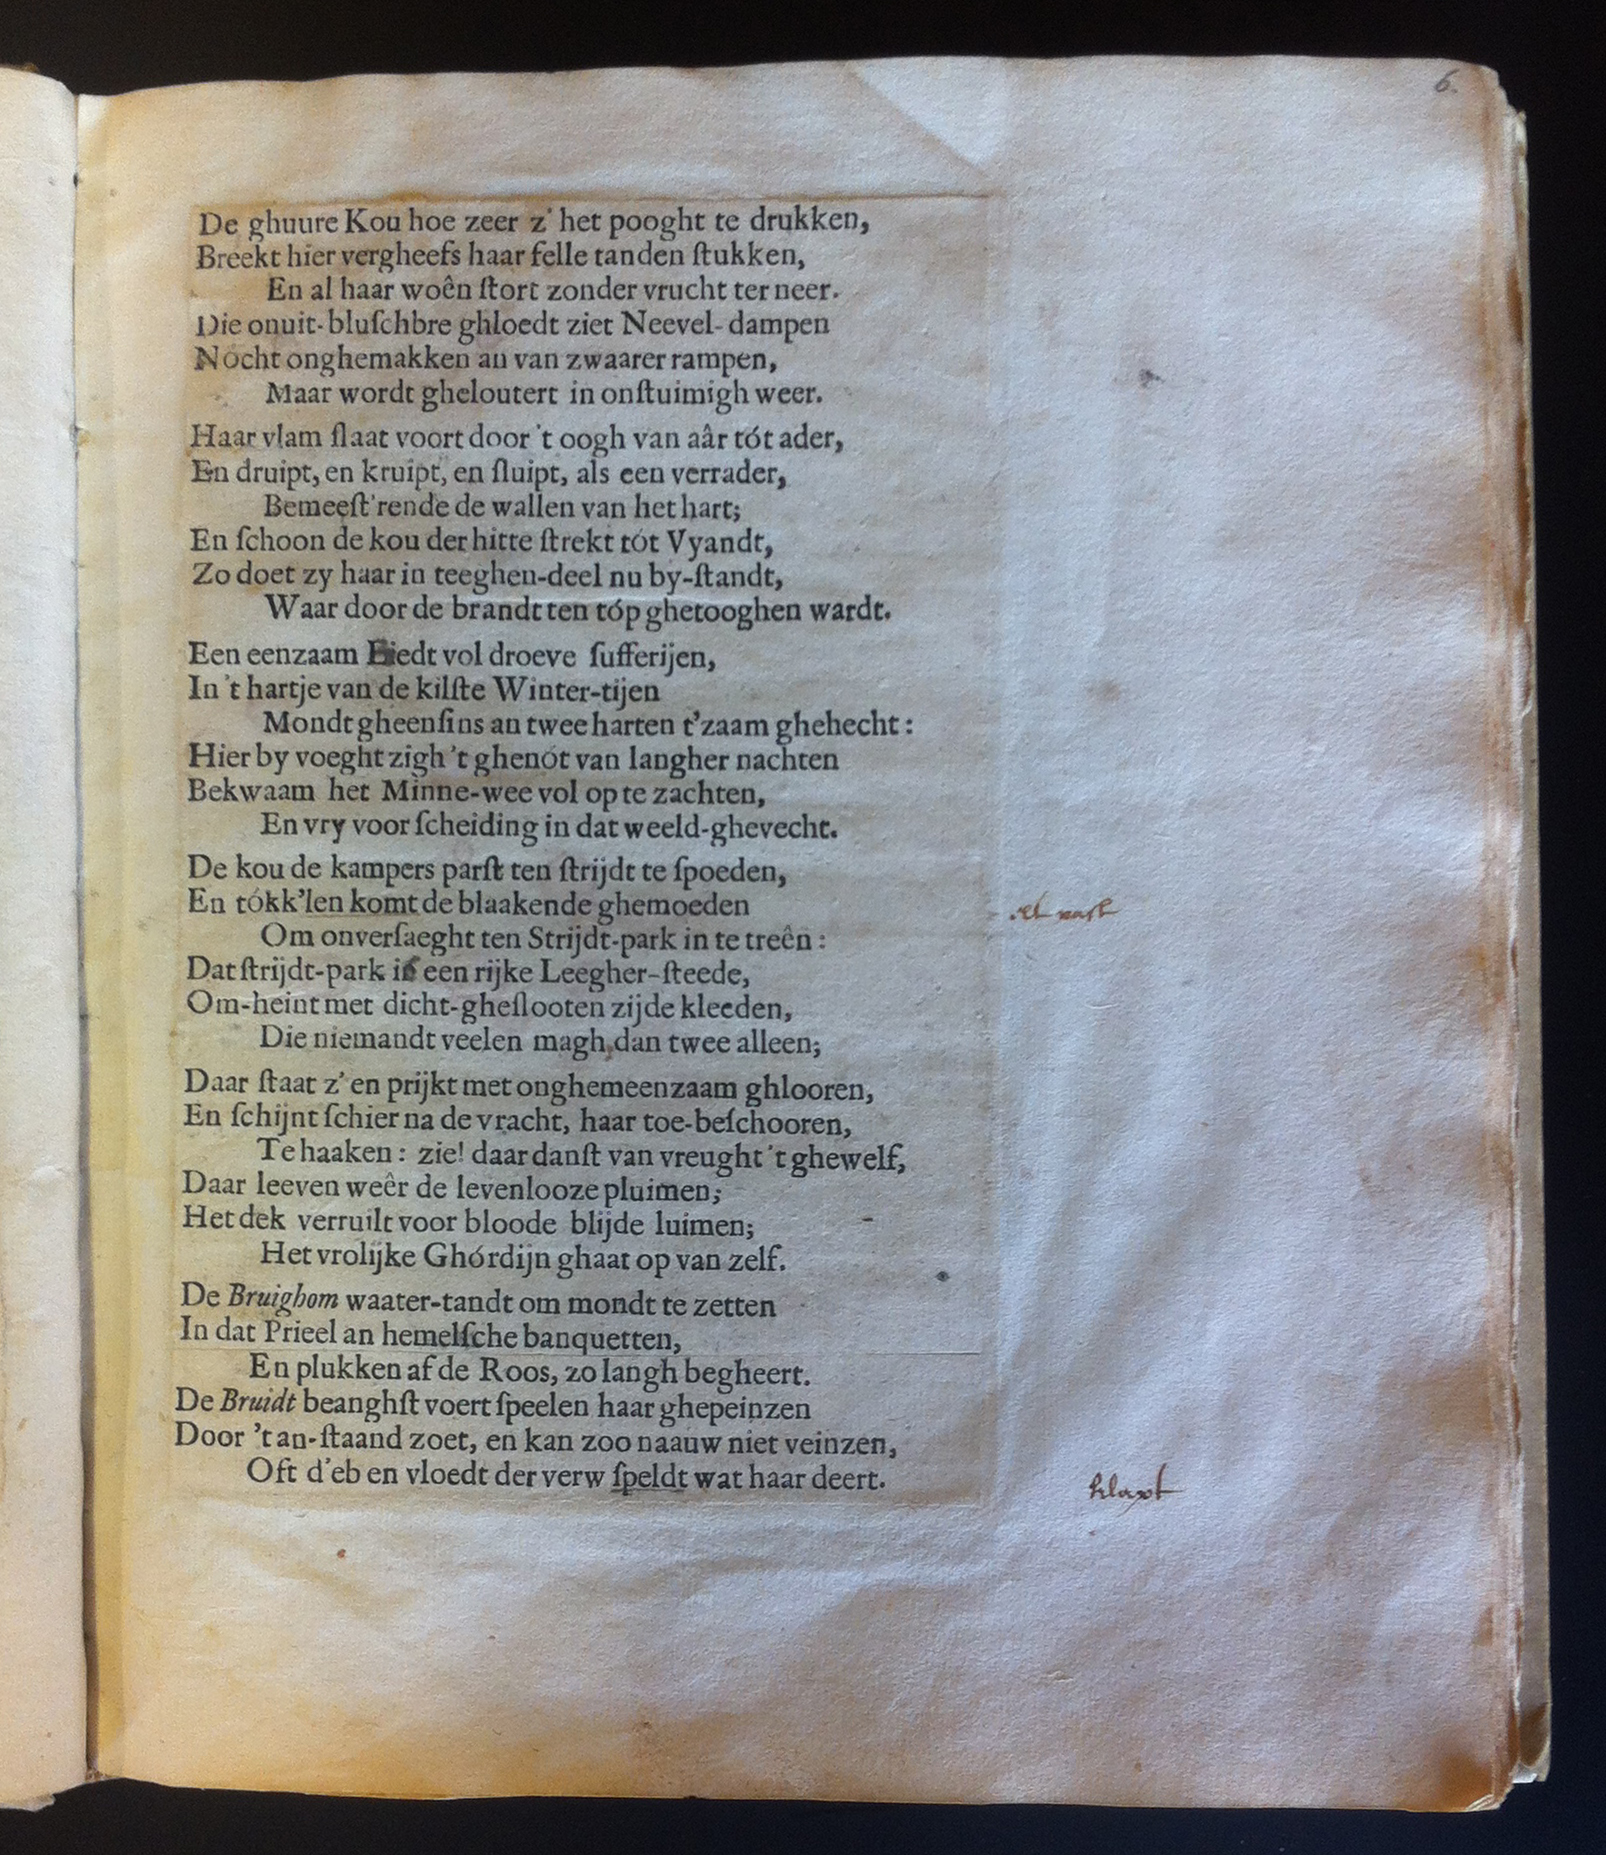 6.
De ghuure Kou hoe zeer z' het pooght te drukken,
Breekt hier vergheefs haar felle tanden ſtukken,
En al haar woên ſtort zonder vrucht ter neer.
Die onuit-bluſchbre ghloedt ziet Neevel-dampen
Nócht onghemakken an van zwaarer rampen,
Maar wordt gheloutert in onſtuimigh weer.
Haar vlam ſlaat voort door 't oogh van aâr tót ader,
En druipt, en kruipt, en ſluipt, als een verrader,
Bemeeſt'rende de wallen van het hart;
En ſchoon de kou der hitte ſtrekt tót Vyandt,
Zo doet zy haar in teeghen-deel nu by-ſtandt,
Waar door de brandt ten tóp ghetooghen wardt.
Een eenzaam Biedt vol droeve ſufferijen,
In 't hartje van de kilſte Winter-tijen
Mondt gheenſins an twee harten t'zaam ghehecht:
Hier by voeght zigh 't ghenót van langher nachten
Bekwaam het Minne-wee vol op te zachten,
En vry voor ſcheiding in dat weeld-ghevecht.
De kou de kampers parſt ten ſtrijdt te ſpoeden,
En tókk'len komt de blaakende ghemoeden
Om onverſaeght ten Strijdt-park in te treên:
Dat ſtrijdt-park is een rijke Leegher-ſteede,
Om-heint met dicht-gheſlooten zijde kleeden,
Die niemandt veelen magh dan twee alleen;
Daar ſtaat z' en prijkt met onghemeenzaam ghlooren,
En ſchijnt ſchier na de vracht, haar toe-beſchooren,
Te haaken: zie! daar danſt van vreught 't ghewelf,
Daar leeven weêr de levenlooze pluimen;
Het dek verruilt voor bloode blijde luimen;
Het vrolijke Ghórdijn ghaat op van zelf.
De Bruighom waater-tandt om mondt te zetten
In dat Prieel an hemelſche banquetten,
En plukken af de Roos, zo langh begheert.
De Bruidt beanghſt voert ſpeelen haar ghepeinzen
Door 't an-ſtaand zoet, en kan zoo naauw niet veinzen,
Oft d'eb en vloedt der verw ſpeldt wat haar deert.
klapt